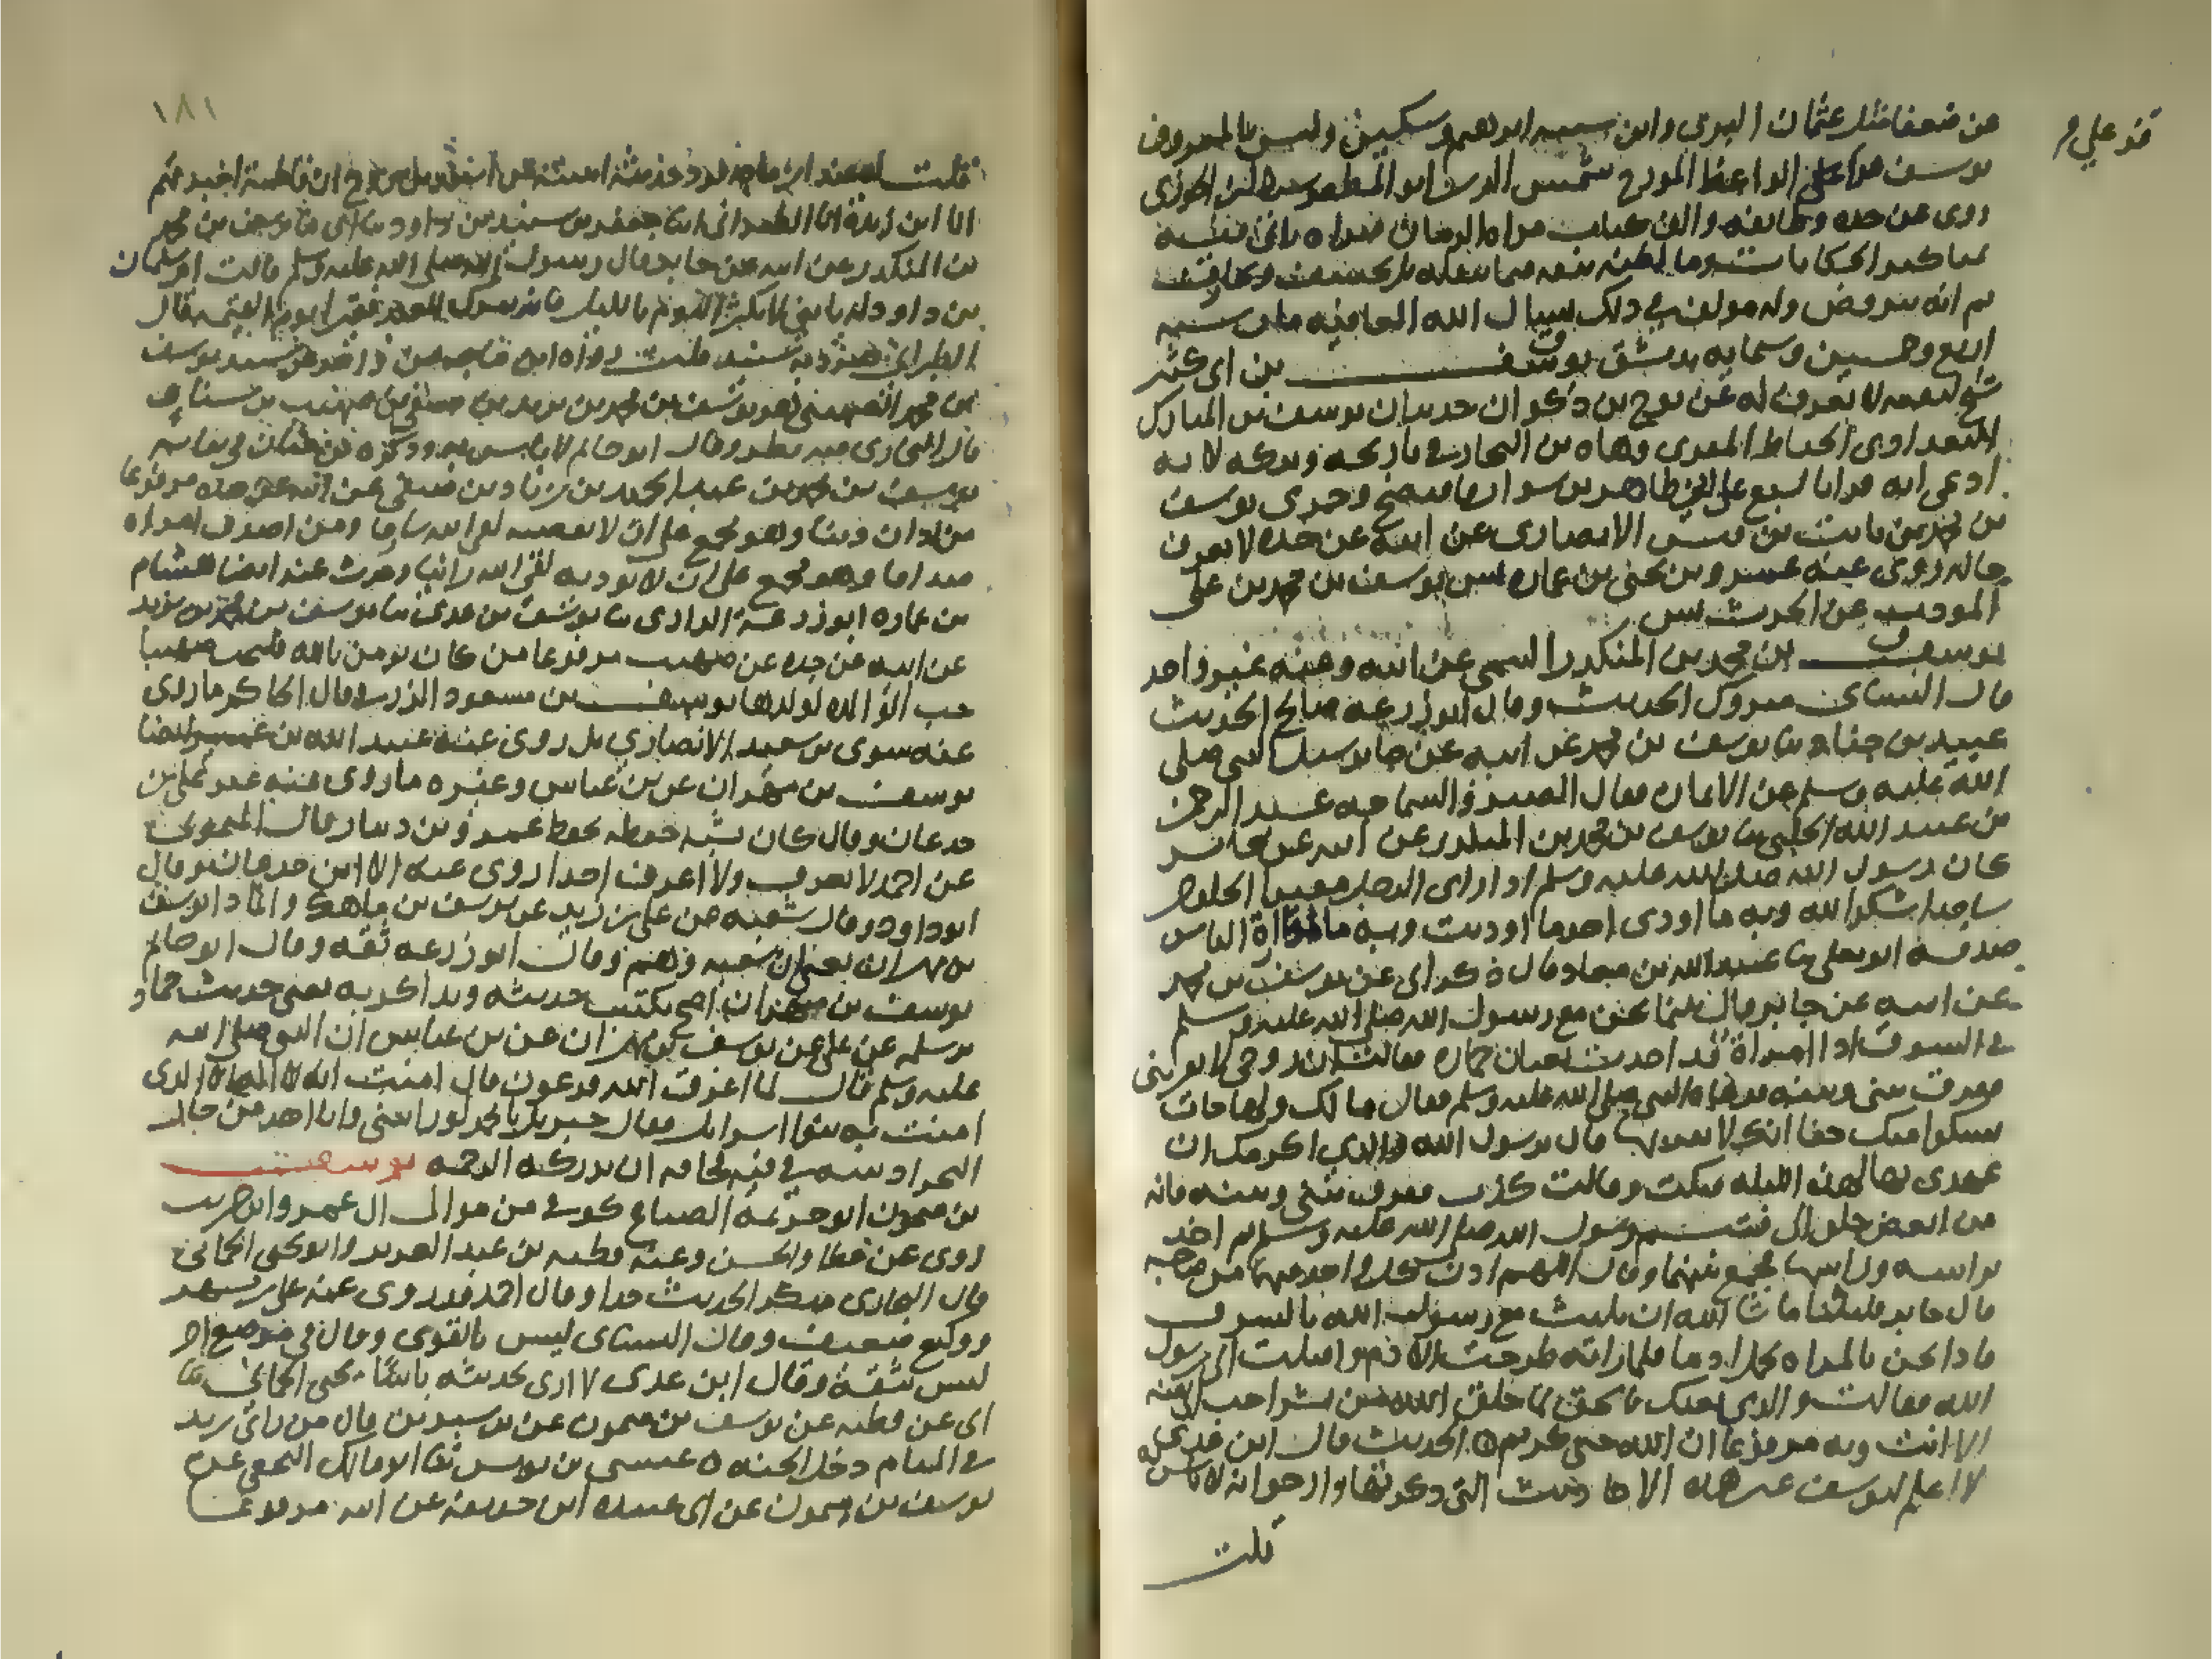 قزعلي
من ضعفا مثل عثمان البري وابن سمية ابرهيم وسكين وليس بالمعروف
يوسف بن قزاعلي الواعظ المورخ شمس الدين ابو المظفر سبط ابن الجوزي
روى عن جده وطائفه والف كتاب مراة الزمان فتراه ياتي فيه
بمناكير الحكايات وما اظنه بثقه فيما ينقله بل يجنف ويجازف
ثم انه ترفض وله مولف في ذلك نسال الله العافيه مات سنة
اربع وخمسين وستمايه بدمشق يوسف بن ابي كثير
شيخ لبقيه لا يعرف له عن نوح بن ذكوان حديثان يوسف بن المبارك
البغدادي الخياط المقري وهاه بن النجار في تاريخه وتركه لانه
ادعى انه قرا بالسبع على ابي طاهر بن سوار فافتضح وجرى يوسف
بن محمد بن ثابت بن قيس الانصاري عن ابيه عن جده لا يعرف
حاله روى عنه عمرو بن يحيى بن عماره يوسف بن محمد بن علي
المودب عن الحرث
يوسف بن محمد بن المنكدر التيمي عن ابيه وعنه غير واحد
قال النسائي متروك الحديث وقال ابو زرعه صالح الحديث
عبيد بن جناد ثنا يوسف بن محمد عن ابيه عن جابر سيل النبي صلى
الله عليه وسلم عن الايمان فقال الصبر والسماحه عبد الرحمن
بن عبيد الله الحلبي ثنا يوسف بن محمد بن المنكدر عن ابيه عن جابر
كان رسول الله صلى الله عليه وسلم اذا راى الرجل مغير الخلق خر
ساجدا شكرا لله وبه ما اوذي احد ما اوذيت وبه مداراة الناس
صدقه ابو يعلى ثنا عبيد الله بن معاذ قال ذكر ابي عن يوسف بن محمد
عن ابيه عن جابر قال بينما نحن مع رسول الله صلى الله عليه وسلم
في السوق اذا امراة قد اخذت بعنان حماره فقالت ان زوجي لا يقربني
ففرق بيني وبينه فدعاه النبي صلى الله عليه وسلم فقال مالك ولها جات
تشكوا منك جفا انك لا تقربها قال يرسول الله والذي اكرمك ان
عهدي بها لهذه الليله فبكت وقالت كذب ففرق بيني وبينه فانه
من ابغض خلق الله الي فتبسم رسول الله صلى الله عليه وسلم ثم اخذ
براسه وراسها فجمع بينهما وقال اللهم ادن كل واحد منهما من صاحبه
قال جابر فلبثنا ما شا الله ان نلبث مع رسول الله بالسوق
فاذا نحن بالمراه تحمل ادما فلما راته طرحت الادم واقبلت الى رسول
الله فقالت والذي بعثك بالحق ما خلق الله من بشر احب الي منه
الا انت وبه مرفوعا ان الله حيي كريم الحديث قال ابن عدي
لا اعلم ليوسف غير هذه الاحاديث التي ذكرتها وارجوا انه لا باس به
قلت
١٨١
قلت
انا ابن ريذة انا الطبراني انا جعفر بن سنيد بن داود ثنا ابي ثنا يوسف بن محمد
بن المنكدر عن ابيه عن جابر قال رسول الله صلى الله عليه وسلم قالت ام سليمان
بن داود له يا بني لا تكثر النوم بالليل فانه يترك العبد فقيرا يوم القيمه قال
الطبراني تفرد به سنيد قلت رواه ابن ماجه عن
بن محمد الصهيبي هو يوسف بن محمد بن يزيد بن صيفي بن صهيب بن سنان
قال البخاري فيه نظر وقال ابو حاتم لا باس به وذكره بن حبان في ثقاته
يوسف بن محمد بن عبد الحميد بن زياد بن صيفي عن ابيه عن جده مرفوعا
من ادان دينا وهو مجمع على ان لا يقضيه لقي الله سارقا ومن اصدق امراة
صداقا وهو مجمع على ان لا يوديه لقي الله زانيا وحدث عنه ايضا هشام
بن عمار ابو زرعة الرازي ثنا يوسف بن عدي ثنا يوسف بن محمد بن يزيد
عن ابيه عن جده عن صهيب مرفوعا من كان يومن بالله فليحب صهيبا
حب الوالده لولدها يوسف بن مسعود الزرقي قال الحاكم ما روى
عنه سوى بن سعيد الانصاري بل روى عنه عبيد الله بن عمر ايضا
يوسف بن مهران عن بن عباس وغيره ما روى عنه غير علي بن
جدعان وقال كان يشبه حفظه بحفظ عمرو بن دينار قال الميموني
عن احمد لا يعرف ولا اعرف احدا روى عنه الا ابن جدعان وقال
ابو داود وقال شعبه عن علي بن زيد عن يوسف بن ماهك وانما ابو يوسف
بن مهران يعني ان شعبه وهم وقال ابو زرعه ثقه وقال ابو حاتم
يوسف بن مهران اصح يكتب حديثه ويذاكر به يعني حديث حماد
بن سلمه عن علي عن يوسف بن مهران عن بن عباس ان النبي صلى الله
عليه وسلم قال لما اغرق الله فرعون قال امنت انه لا اله الا الذي
امنت به بنوا اسرايل فقال جبريل يا محمد لو رايتني وانا اخذ من حال
البحر ادسه في فيه مخافه ان تدركه الرحمه يوسف
بن ميمون ابو خزيمة الصباغ كوفي من موالي ال عمرو بن حريث
روى عن عطا والحسن وعنه قطبه بن عبد العزيز وابو يحيى الحماني
قال البخاري منكر الحديث جدا وقال احمد قد روى عنه علي بن مسهر
ووكيع ضعيف وقال النسائي ليس بالقوي وقال في موضع اخر
ليس بثقة وقال ابن عدي لا ارى بحديثه باسا يحيى الحماني ثنا
ابي عن قطبه عن يوسف بن ميمون عن بن سيرين قال من راى ربه
في المنام دخل الجنه عيسى بن يونس ثنا ابو مالك النخعي عن
يوسف بن ميمون عن ابي عبيده ابن حذيفه عن ابيه مرفوعا